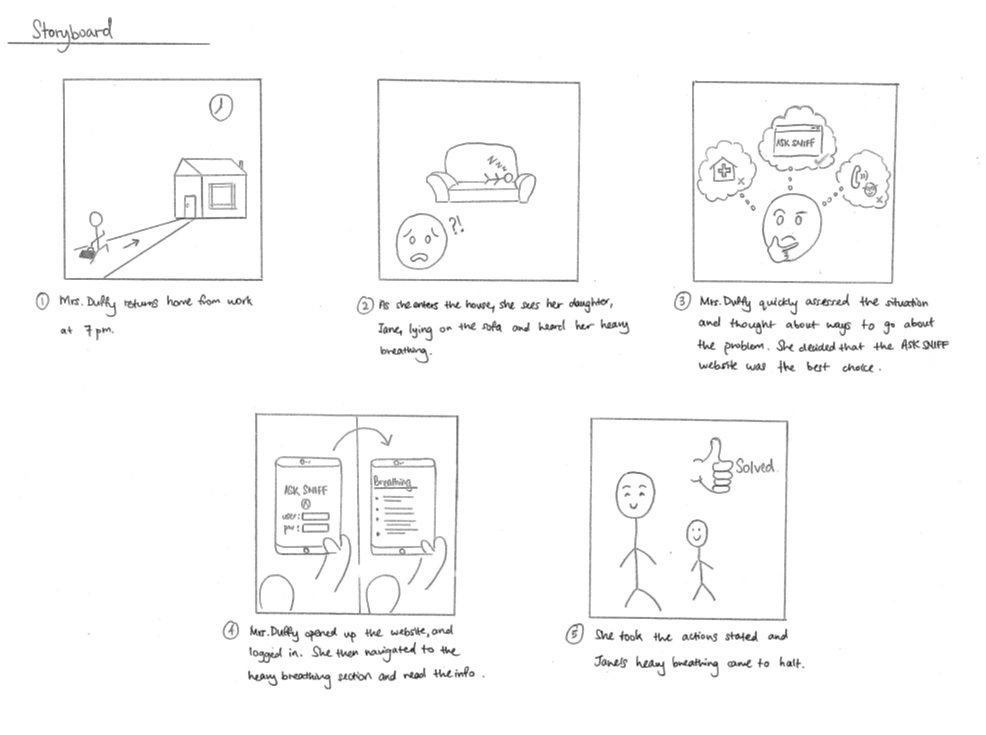 Storyboard
① Mrs. Duffy returns home from work
at 7 pm.
NNN
?!
② As she enters the house, she sees her daughter,
Jane, lying on the sofa and heard her heavy
breathing.
ASK SNIFF
③ Mrs. Duffy quickly assessed the situation
and thought about ways to go about
the problem. She decided that the ASK SNIFF
website was the best choice.
ASK SNIFF
user:
pw:
Breathing
④ Mrs. Duffy opened up the website, and
logged in. She then navigated to the
heavy breathing section and read the info.
Solved.
⑤ She took the actions stated and
Jane's heavy breathing came to halt.